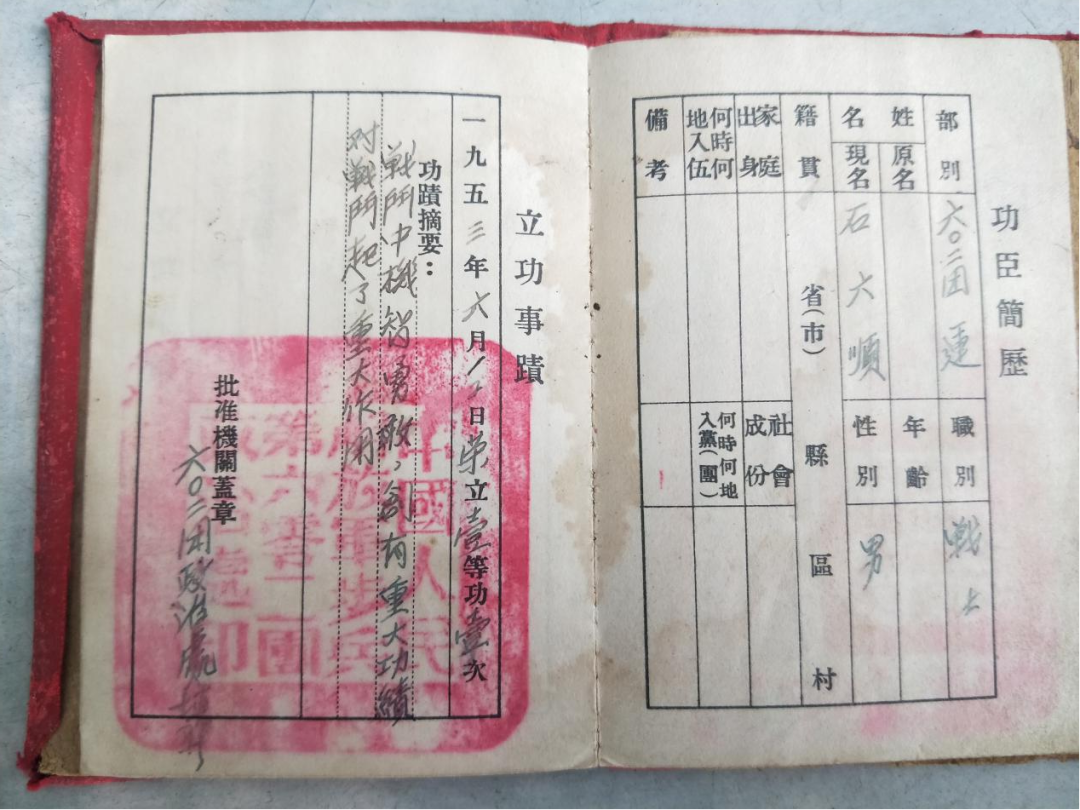 功臣簡歷
部別 六〇二团 連 職別 戰士
姓名 原名 年齡
現名 石六順 性別 男
籍貫 省(市) 縣 區 村
家庭出身 社會成份
何時何地入伍 何時何地入黨(團)
備考
立功事蹟
一九五三年六月 日 荣立壹等功壹次
功蹟摘要：
戰鬥中機智勇敢，創有重大功績
对戰鬥起了重大作用
批准機關蓋章
六〇二团政治處
中國人民
解放軍步兵
第六零二團
政治處印